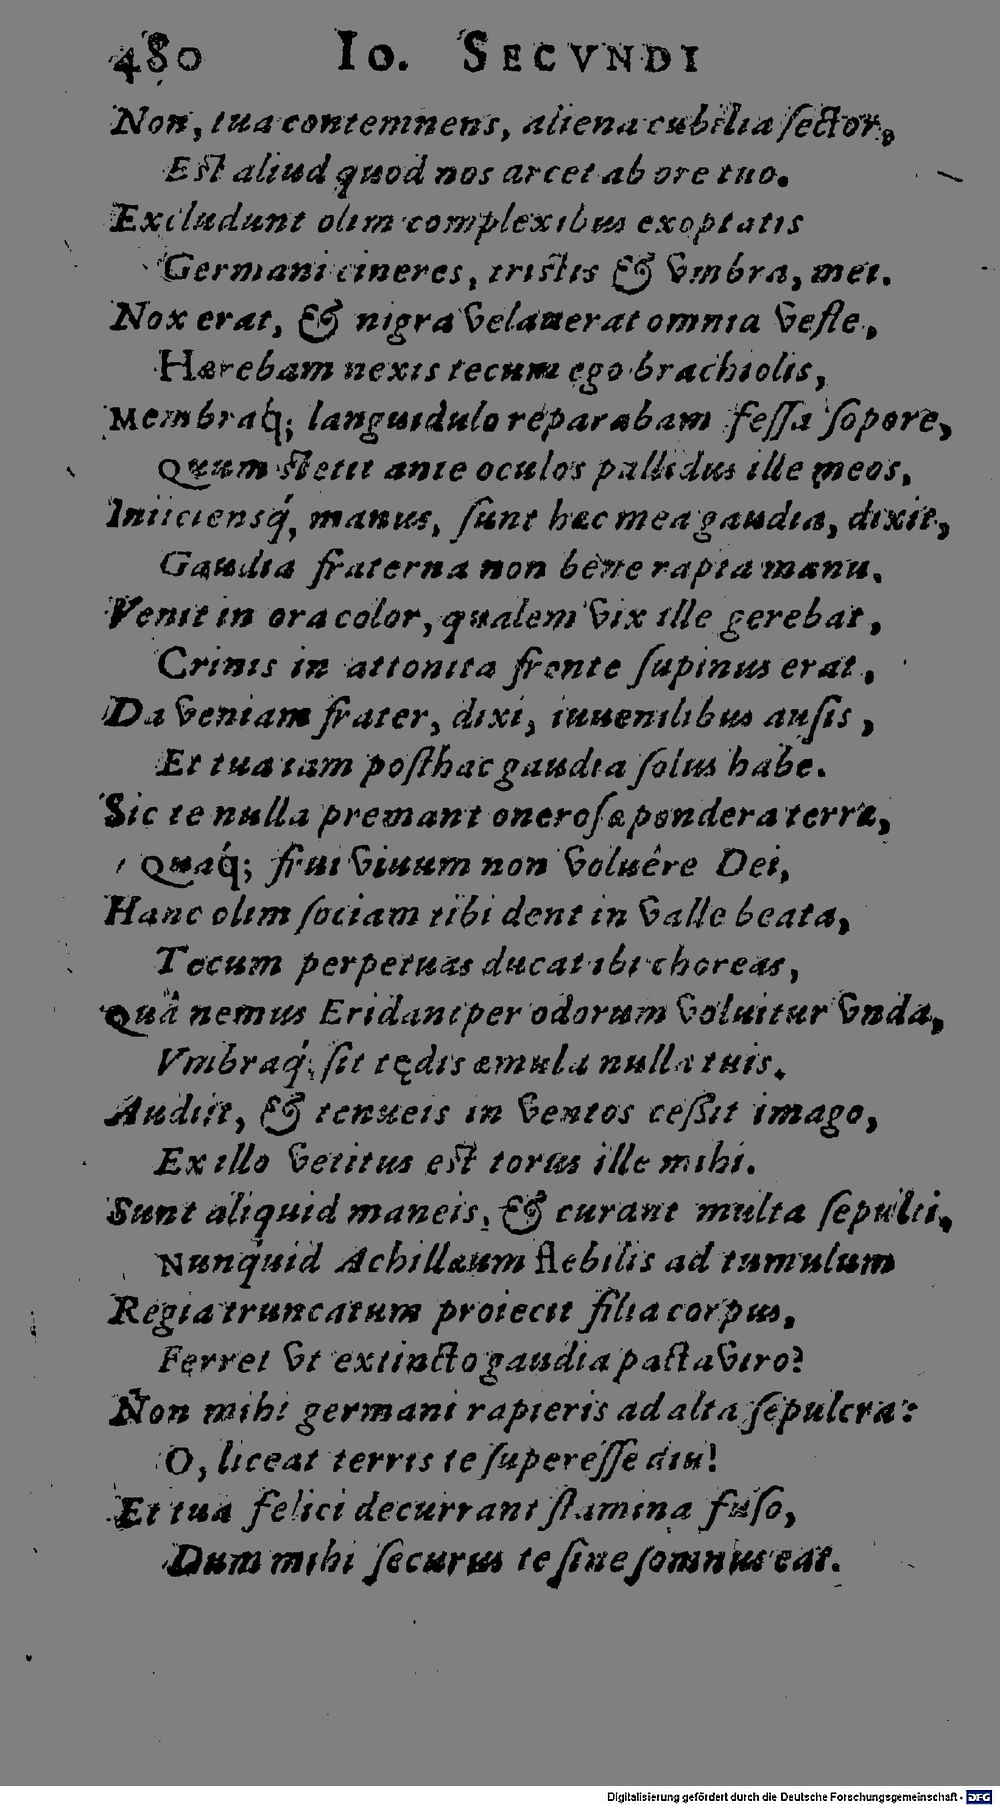 480 Io. SECVNDI
Non, tua contemnens, aliena cubilia ſector,
Eſt aliud quod nos arcet ab ore tuo.
Excludunt olim complexibus exoptatis
Germani cineres, triſtis & vmbra, mei.
Nox erat, & nigra velauerat omnia veſte,
Hærebam nexis tecum ego brachiolis,
Membraq́; languidulo reparabam feſſa ſopore,
Quum ſtetit ante oculos pallidus ille meos,
Iniiciensq́, manus, ſunt hæc mea gaudia, dixit,
Gaudia fraterna non bene rapta manu.
Venit in ora color, qualem vix ille gerebat,
Crinis in attonita fronte ſupinus erat,
Da veniam frater, dixi, iuuenilibus auſis,
Et tua iam poſthac gaudia ſolus habe.
Sic te nulla premant oneroſæ pondera terræ,
Quaq́; frui viuum non voluêre Dei,
Hanc olim ſociam tibi dent in valle beata,
Tecum perpetuas ducat ibi choreas,
Quâ nemus Eridani per odorum voluitur vnda,
Vmbraq́; ſit tędis æmula nulla tuis.
Audiit, & tenueis in ventos ceſſit imago,
Ex illo vetitus eſt torus ille mihi.
Sunt aliquid maneis, & curant multa ſepulti,
Nunquid Achillæum flebilis ad tumulum
Regia truncatum proiecit filia corpus,
Ferret vt extincto gaudia pacta viro?
Non mihi germani rapieris ad alta ſepulcra:
O, liceat terris te ſupereſſe diu!
Et tua felici decurrant ſtamina fuſo,
Dum mihi ſecurus te ſine ſomnus eat.
Digitalisierung gefördert durch die Deutsche Forschungsgemeinschaft - DFG